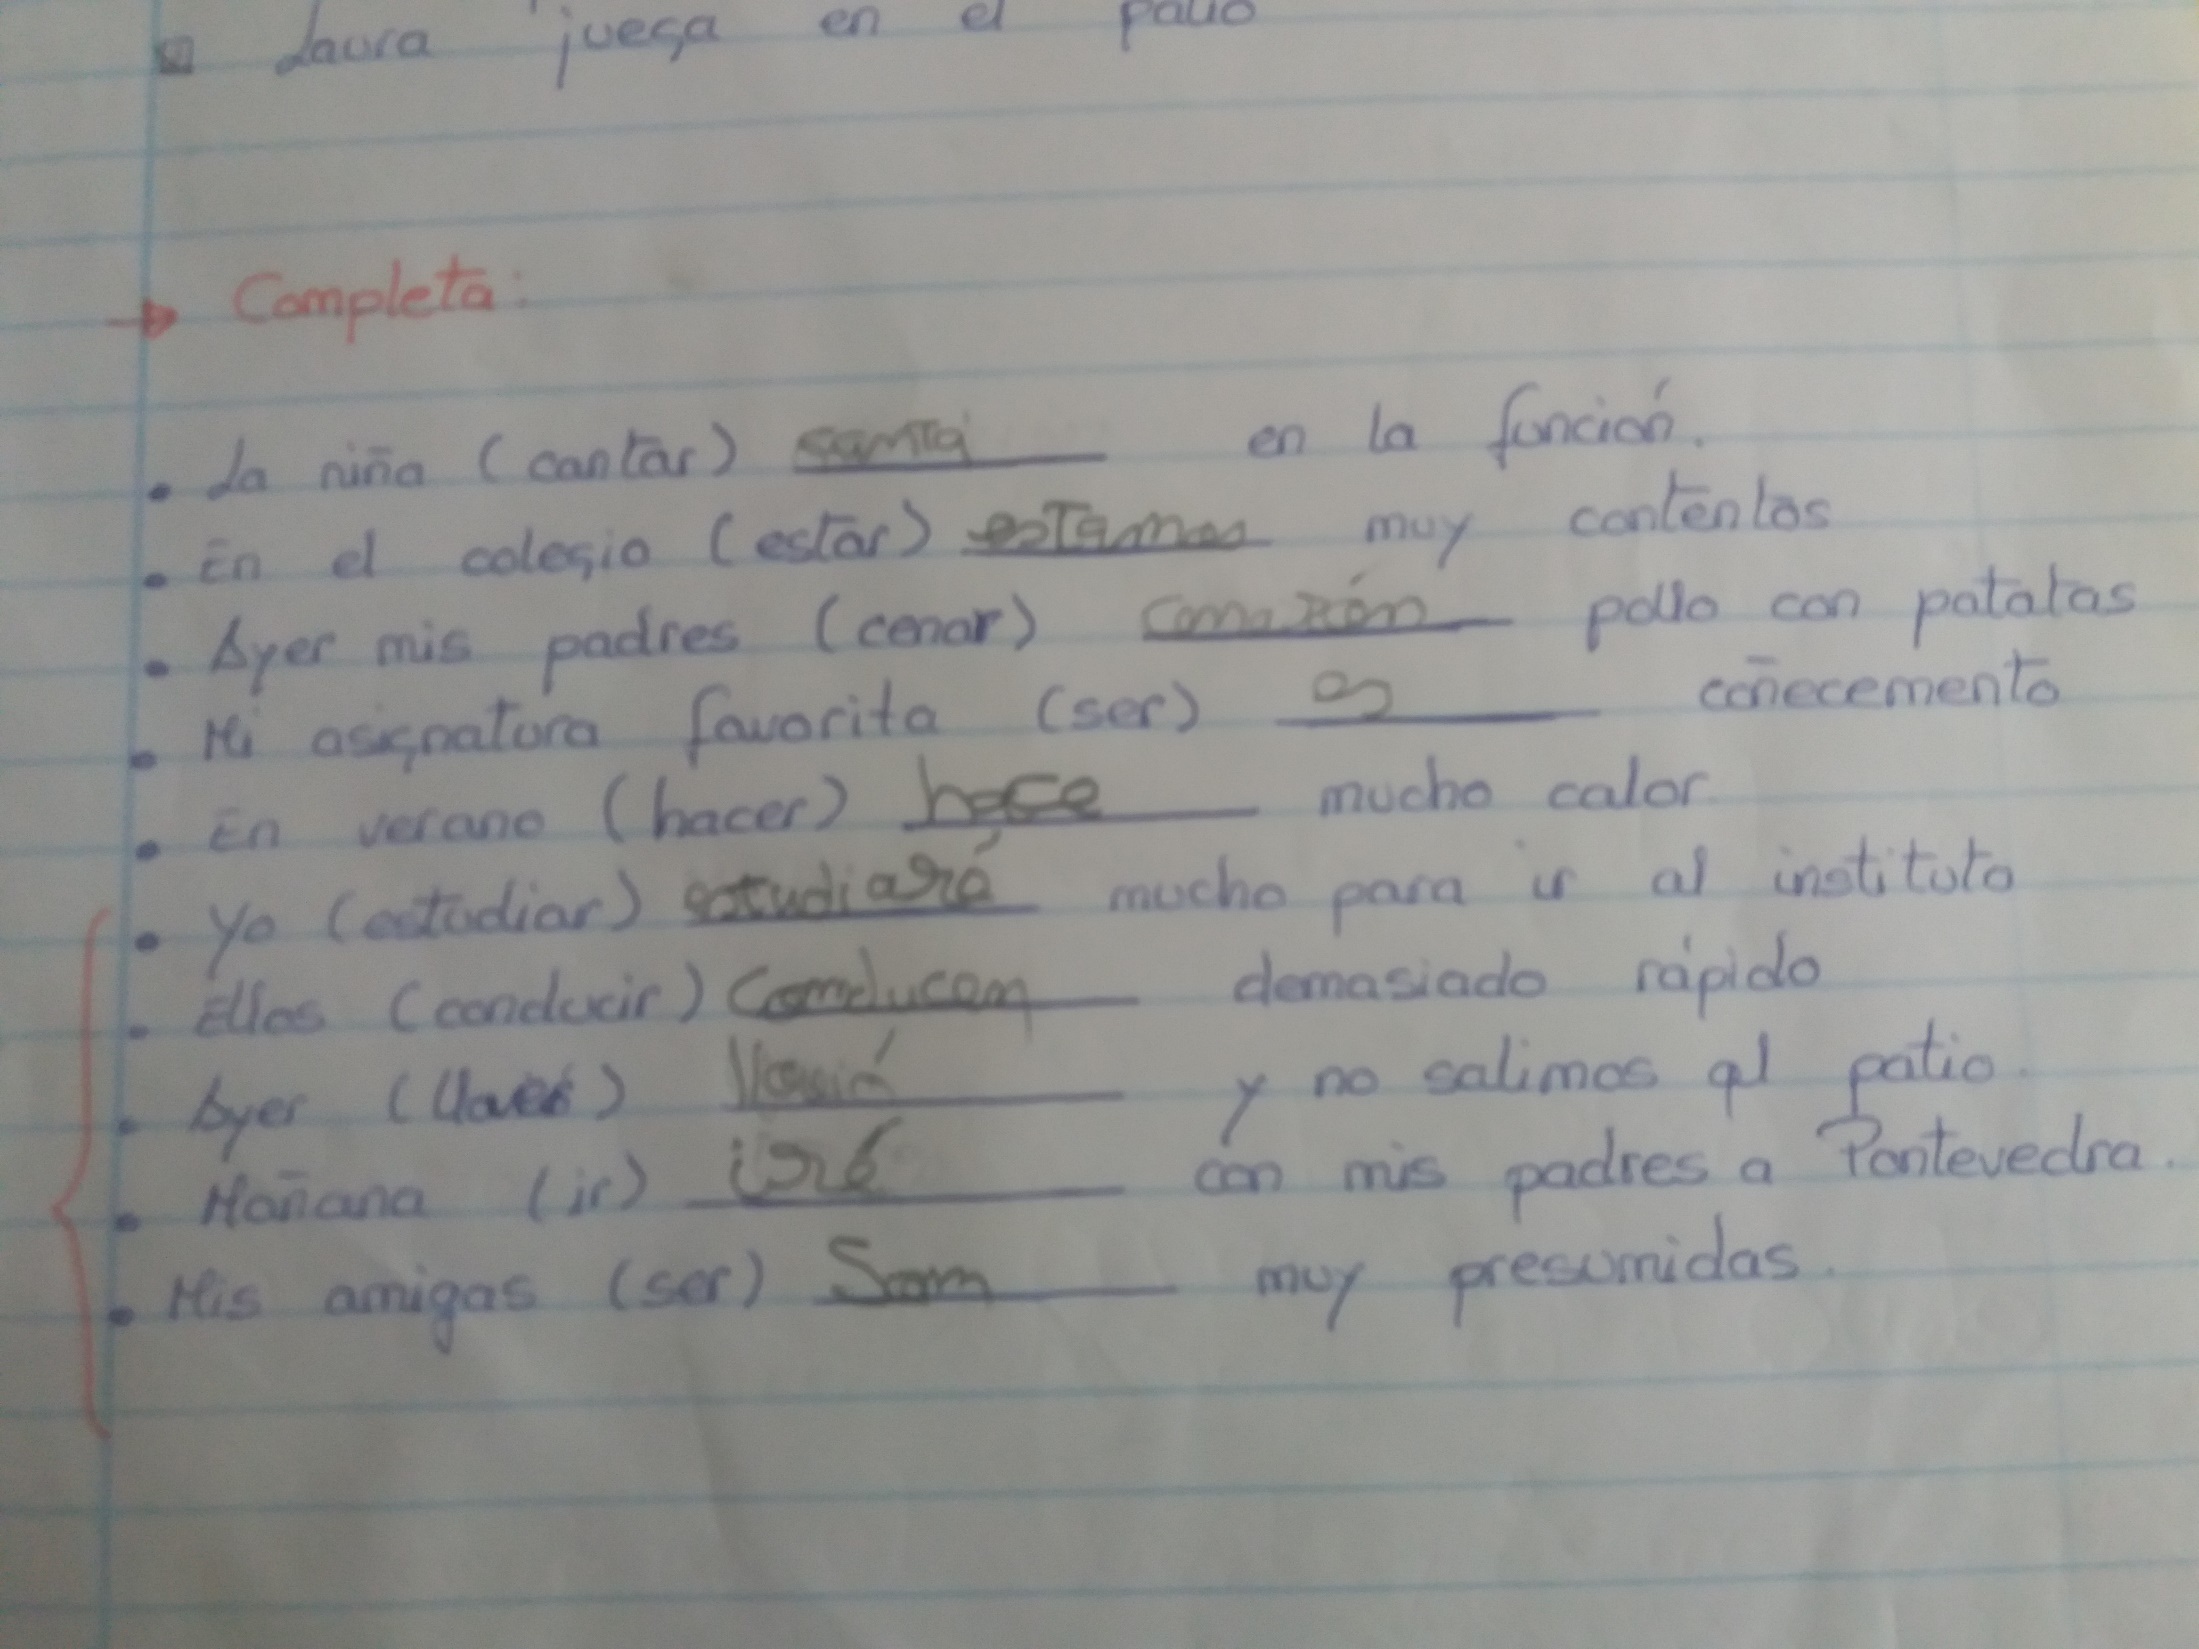 Laura juega en el patio
Completa:
. La niña (cantar) canta en la función.
. En el colegio (estar) estamos muy contentos
. Ayer mis padres (cenar) pollo con patatas
. Mi asignatura favorita (ser) es coñecemento
. En verano (hacer) hace mucho calor
. Yo (estudiar) estudiaré mucho para ir al instituto
. Ellos (conducir) conducen demasiado rápido
. Ayer (llover) y no salimos al patio.
. Mañana (ir) iré con mis padres a Pontevedra.
. Mis amigas (ser) Som muy presumidas.